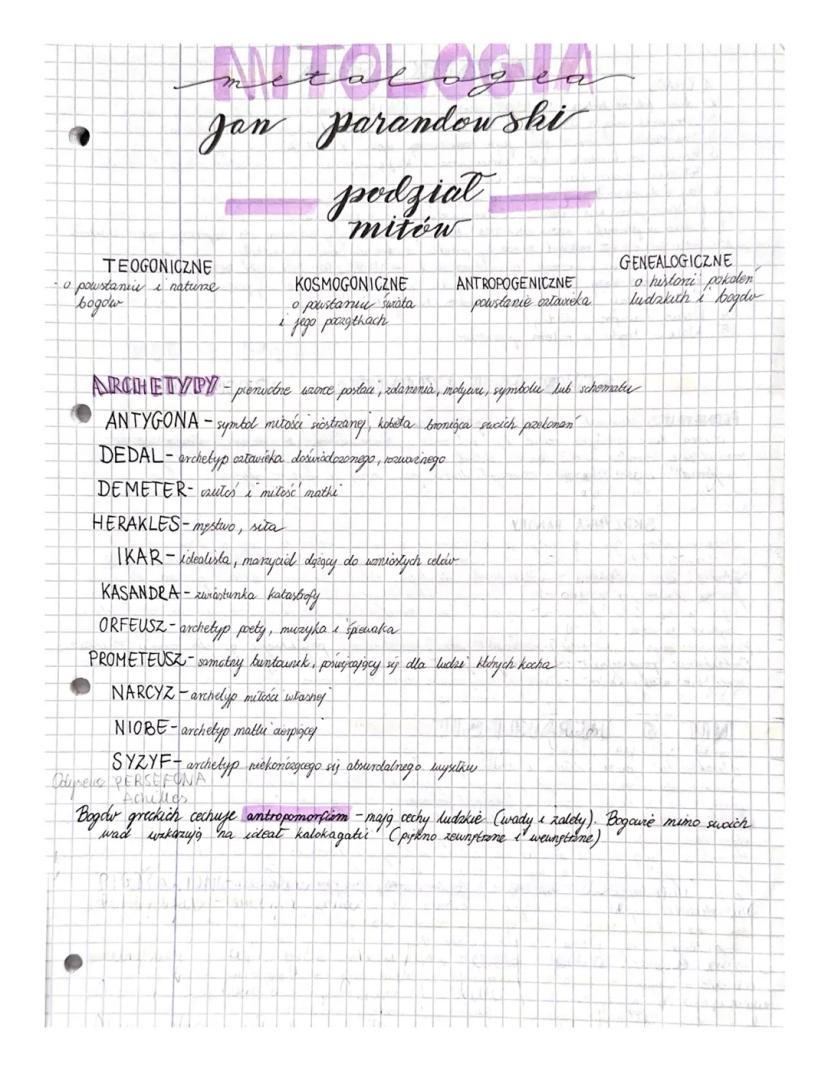 MITOLOGIA
Jan Parandowski
podział
mitów
TEOGONICZNE
- o powstaniu i naturze
bogów
KOSMOGONICZNE
o powstaniu świata
i jego początkach
ANTROPOGENICZNE
powstanie człowieka
GENEALOGICZNE
o historii pokoleń
ludzkich i bogów
ARCHETYPY - pierwotne wzorce postaci, zdarzenia, motywu, symbolu lub schematu
ANTYGONA - symbol miłości siostrzanej, kobieta broniąca swoich przekonań
DEDAL - archetyp człowieka doświadczonego, rozważnego
DEMETER - czułość i miłość matki
HERAKLES - męstwo, siła
IKAR - idealista, marzyciel dążący do wzniosłych celów
KASANDRA - zwiastunka katastrofy
ORFEUSZ - archetyp poety, muzyka i śpiewaka
PROMETEUSZ - samotny buntownik, poświęcający się dla ludzi których kocha
NARCYZ - archetyp miłości własnej
NIOBE - archetyp matki cierpiącej
SYZYF - archetyp niekończącego się absurdalnego wysiłku
Odyseusz PERSEFONA
Achilles
Bogów greckich cechuje antropomorfizm - mają cechy ludzkie (wady i zalety). Bogowie mimo swoich
wad wskazują na ideał kalokagatii (piękno zewnętrzne i wewnętrzne)